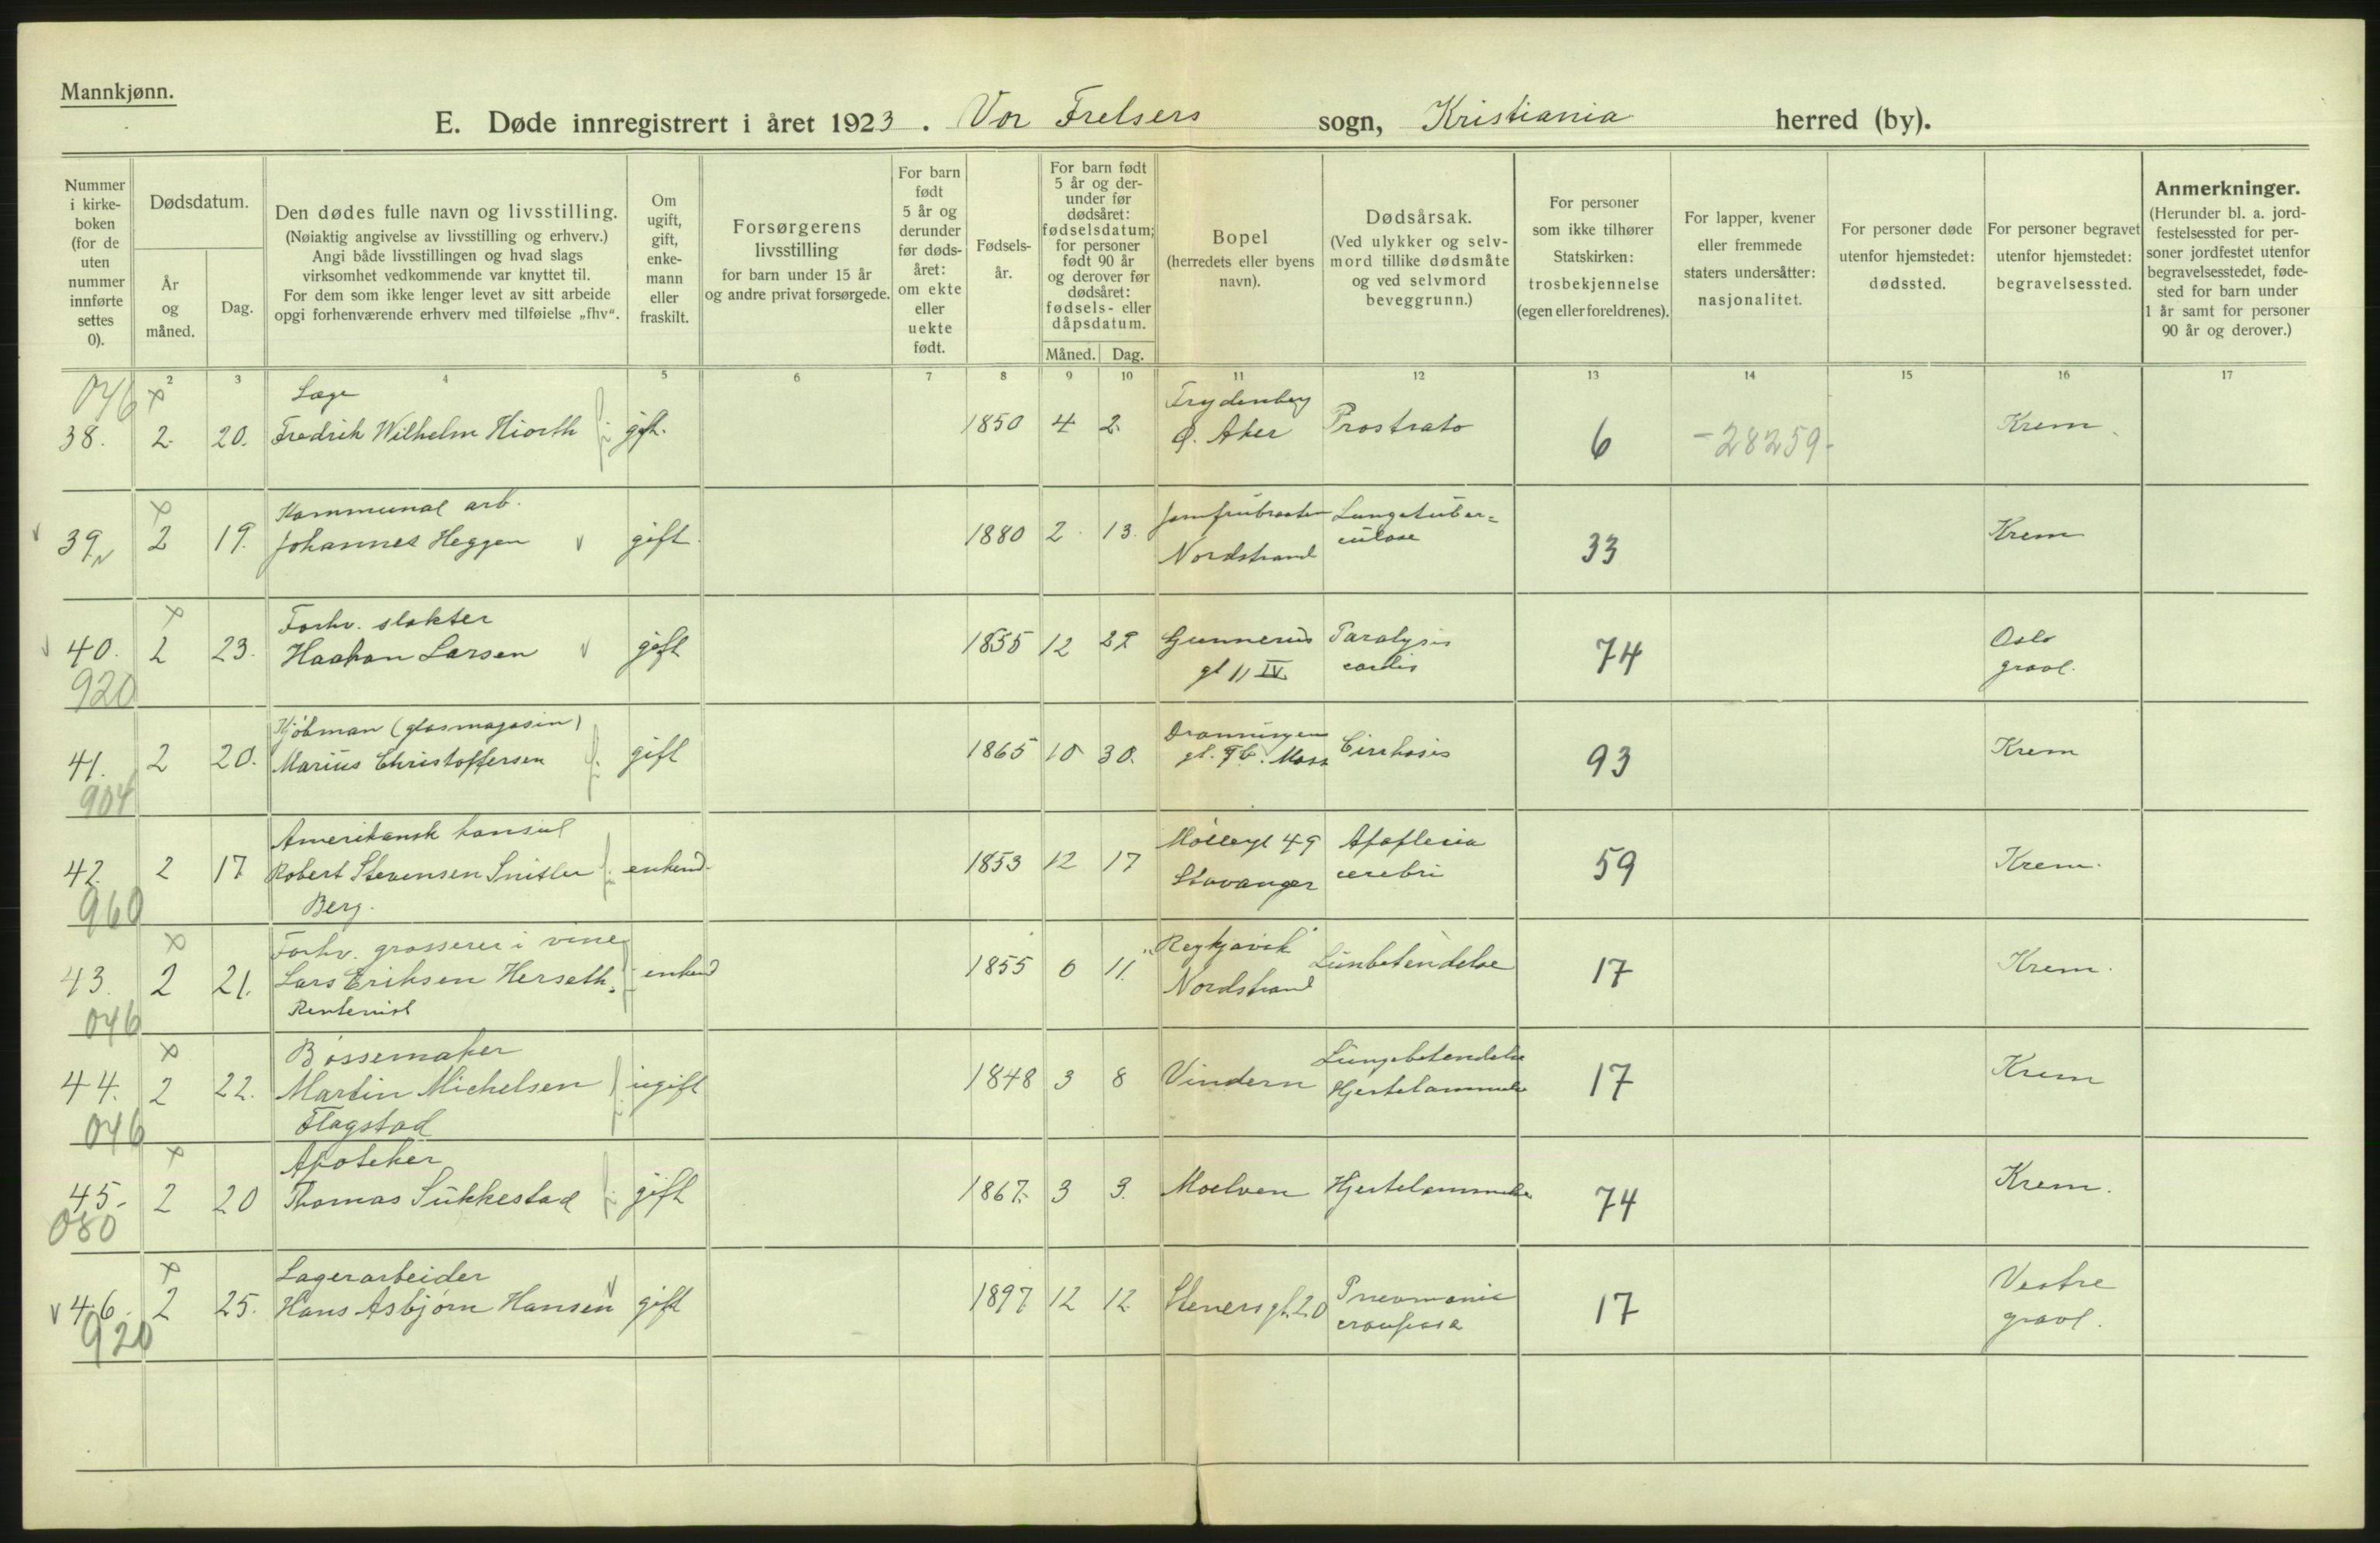 Mannkjønn.
E. Døde innregistrert i året 1923. Vor Frelsers sogn, Kristiania herred (by).
Nummer i kirke-boken (for de uten nummer innførte settes 0).
Dødsdatum.
År og måned.
Dag.
Den dødes fulle navn og livsstilling.
(Nøiaktig angivelse av livsstilling og erhverv.)
Angi både livsstillingen og hvad slags
virksomhet vedkommende var knyttet til.
For dem som ikke lenger levet av sitt arbeide
opgi forhenværende erhverv med tilføielse „fhv“.
Om ugift, gift, enke-mann eller fraskilt.
Forsørgerens livsstilling
for barn under 15 år
og andre privat forsørgede.
For barn født 5 år og derunder før døds-året: om ekte eller uekte født.
Fødsels-år.
For barn født 5 år og der-under før dødsåret: fødselsdatum; for personer født 90 år og derover før dødsåret: fødsels- eller dåpsdatum.
Måned. Dag.
Bopel
(herredets eller byens navn).
Dødsårsak.
(Ved ulykker og selv-mord tillike dødsmåte og ved selvmord beveggrunn.)
For personer som ikke tilhører Statskirken: trosbekjennelse (egen eller foreldrenes).
For lapper, kvener eller fremmede staters undersåtter: nasjonalitet.
For personer døde utenfor hjemstedet: dødssted.
For personer begravet utenfor hjemstedet: begravelsessted.
Anmerkninger.
(Herunder bl. a. jord-festelsessted for per-soner jordfestet utenfor begravelsesstedet, føde-sted for barn under 1 år samt for personer 90 år og derover.)
2 3 4 5 6 7 8 9 10 11 12 13 14 15 16 17
046 x Læge Frydenberg
38. 2. 20. Fredrik Wilhelm Hiorth gift. 1850 4 2. Ø. Aker Prostrato 6 -28259- Krem.
x Kommunal arb. Jomfrubraaten Lungetuber=
39 2 19. Johannes Heggen v gift. 1880 2 13. Nordstrand culose 33 Krem
x Forhv. slakter
40. 2 23. Haakon Larsen v gift 1855 12 Gunnerus Paralysis 74 Oslo
920 gt 11 IV cordis gravl.
Kjøbman (glasmagasin) Dronningens
41. 2 20. Marius Christoffersen gift 1865 10 30. gt. Moss Cirrhosis 93 Krem
904
Amerikansk konsul Møllergt 49 Apoplexia
42 2 17 Robert Stevensen Snitler enkem. 1853 12 17 Stavanger cerebri 59 Krem.
960 Berg.
x Forhv. grosserer i vine "Reykjavik"
43. 2 21. Lars Eriksen Herseth. enkem 1855 6 11. Nordstrand Lunbetendelse 17 Krem.
046 Rentenist
x Bøssemaker Lungebetendelse
44. 2 22. Martin Michelsen ugift 1848 3 8 Vindern Hjertelammelse 17 Krem
046 Flagstad
x Apoteker
45. 2 20 Thomas Sukkestad gift 1867. 3 3. Moelven Hjertelammelse 74 Krem.
080
x Lagerarbeider Vestre
v 46. 2 25. Hans Asbjørn Hansen v gift 1897 12 12 Stenersgt. 20 Pneumonia 17 gravl.
920 crouposa